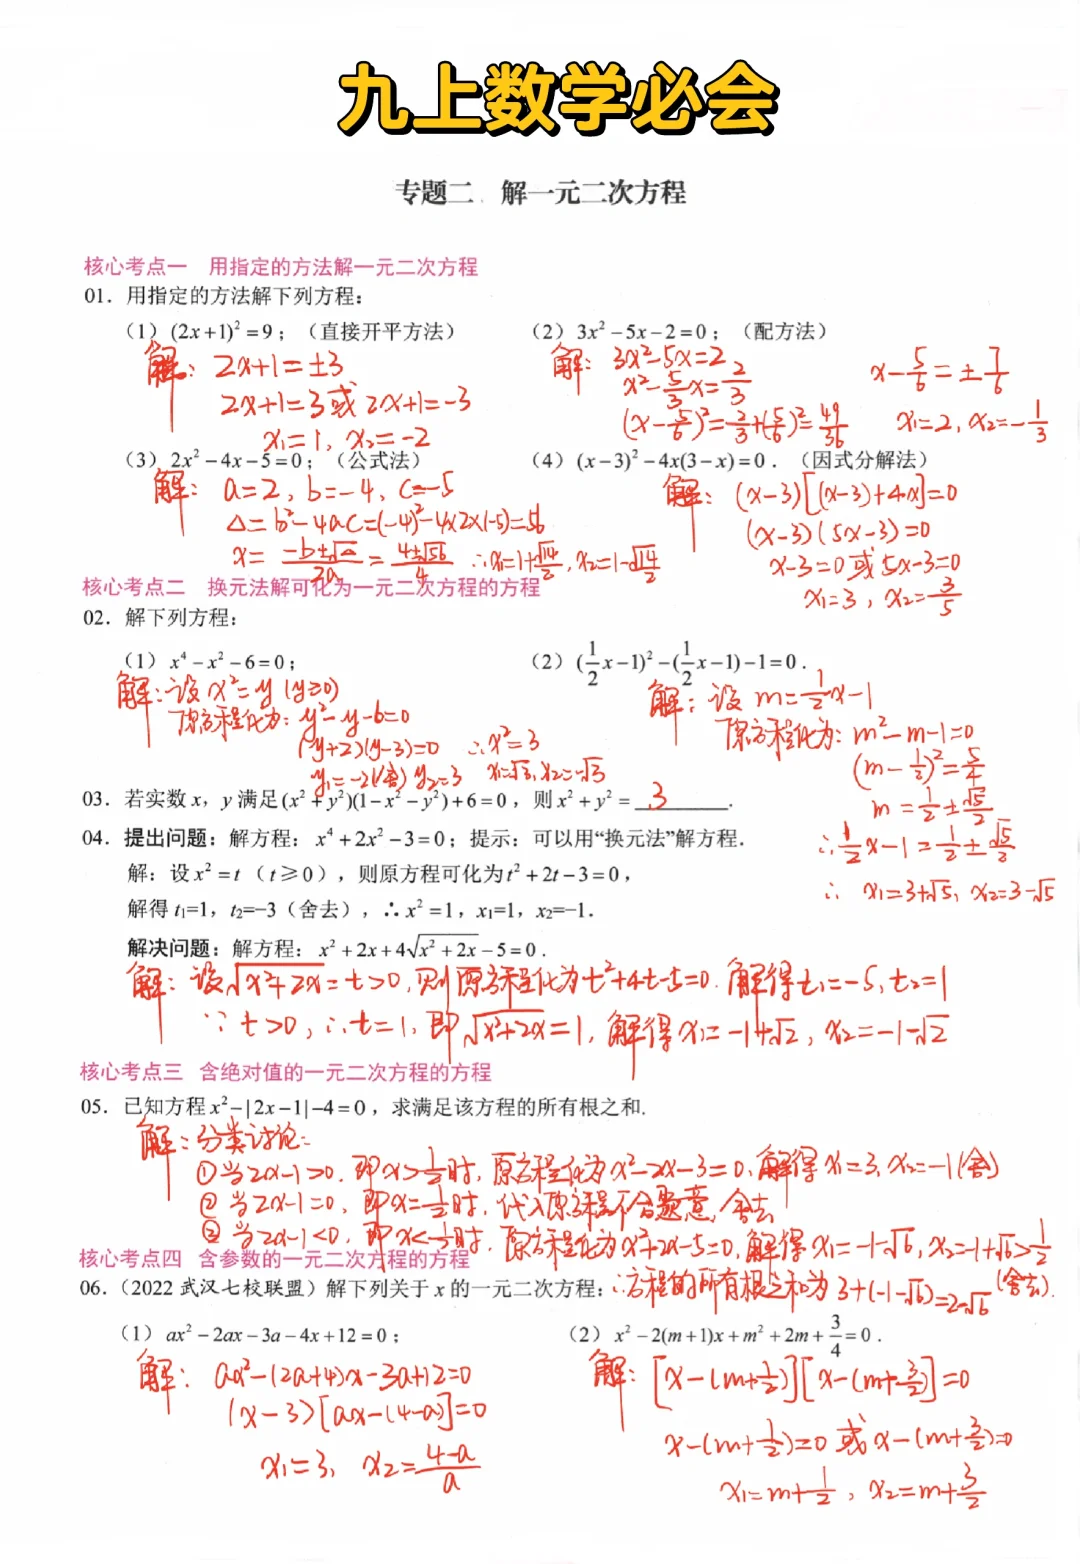 九上数学必会
专题二 解一元二次方程
核心考点一 用指定的方法解一元二次方程
01. 用指定的方法解下列方程：
（1）(2x+1)²=9；（直接开平方法） （2）3x²−5x−2=0；（配方法）
解： 2x+1=±3
2x+1=3或2x+1=-3
x₁=1, x₂=-2
解： 3x²-5x=2
x²-5/3x=2/3
(x-5/6)²=2/3+(5/6)²=49/36
x-5/6=±7/6
x₁=2, x₂=-1/3
（3）2x²−4x−5=0；（公式法） （4）(x−3)²−4x(3−x)=0．（因式分解法）
解： a=2, b=-4, c=-5
Δ=b²-4ac=(-4)²-4×2×(-5)=56
x=(-b±√Δ)/2a=(4±√56)/4 ∴x₁=1+√14/2, x₂=1-√14/2
解： (x-3)[(x-3)+4x]=0
(x-3)(5x-3)=0
x-3=0或5x-3=0
x₁=3, x₂=3/5
核心考点二 换元法解可化为一元二次方程的方程
02. 解下列方程：
（1）x⁴−x²−6=0； （2）(1/2x−1)²−(1/2x−1)−1=0．
解：设x²=y (y≥0)
原方程化为：y²-y-6=0
(y+2)(y-3)=0 ∴x²=3
y₁=-2(舍) y₂=3 x₁=√3, x₂=-√3
解：设m=1/2x-1
原方程化为：m²-m-1=0
(m-1/2)²=5/4
m=1/2±√5/2
∴1/2x-1=1/2±√5/2
∴ x₁=3+√5, x₂=3-√5
03. 若实数x，y满足(x²+y²)(1−x²−y²)+6=0，则x²+y²= 3 ．
04. 提出问题：解方程：x⁴+2x²−3=0；提示：可以用“换元法”解方程．
解：设x²=t（t≥0），则原方程可化为t²+2t−3=0，
解得t₁=1，t₂=−3（舍去），∴x²=1，x₁=1，x₂=−1．
解决问题：解方程：x²+2x+4√(x²+2x)−5=0．
解：设√(x²+2x)=t>0, 则原方程化为t²+4t-5=0. 解得t₁=-5, t₂=1
∵t>0, ∴t=1, 即√(x²+2x)=1, 解得x₁=-1+√2, x₂=-1-√2
核心考点三 含绝对值的一元二次方程的方程
05. 已知方程x²−|2x−1|−4=0，求满足该方程的所有根之和.
解：分类讨论：
①当2x-1>0, 即x>1/2时, 原方程化为x²-2x-3=0, 解得x₁=3, x₂=-1(舍)
②当2x-1=0, 即x=1/2时, 代入原方程不合题意, 舍去
③当2x-1<0, 即x<1/2时, 原方程化为x²+2x-5=0, 解得x₁=-1-√6, x₂=-1+√6>1/2 (舍去).
∴方程的所有根之和为3+(-1-√6)=2-√6
核心考点四 含参数的一元二次方程的方程
06.（2022 武汉七校联盟）解下列关于x的一元二次方程：
（1）ax²−2ax−3a−4x+12=0； （2）x²−2(m+1)x+m²+2m+3/4=0．
解： ax²-(2a+4)x-3a+12=0
(x-3)[ax-(4-a)]=0
x₁=3, x₂=(4-a)/a
解： [x-(m+1/2)][x-(m+3/2)]=0
x-(m+1/2)=0或x-(m+3/2)=0
x₁=m+1/2, x₂=m+3/2